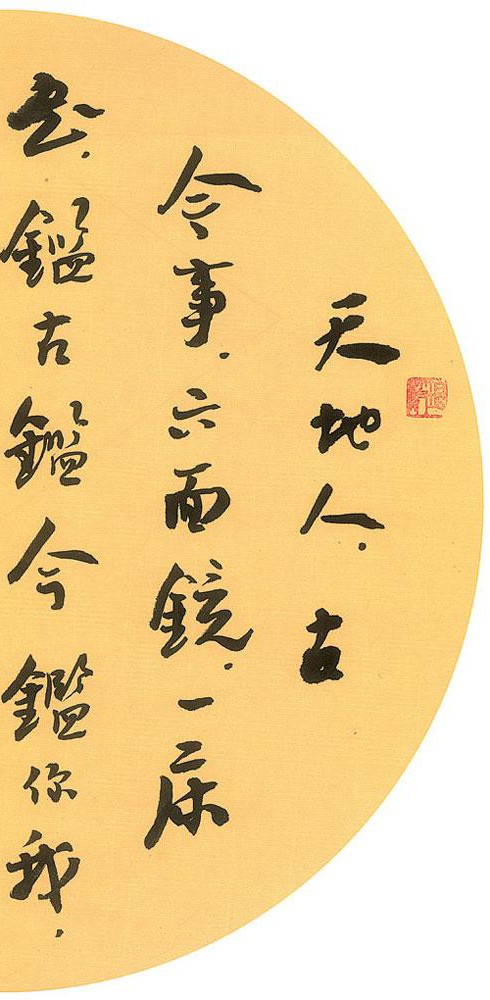 天地人、古
今事、六面鏡、一床
书、鑑古鑑今鑑你我、